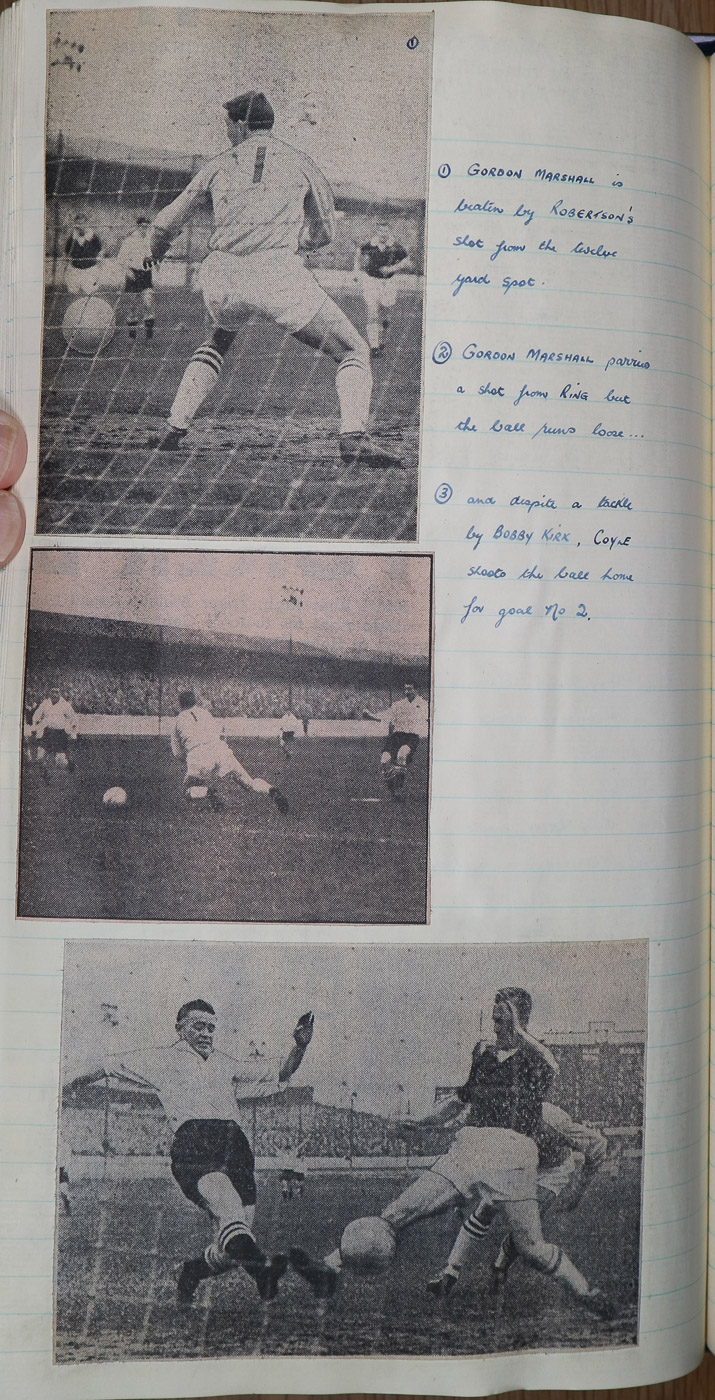 ①
1
1
① GORDON MARSHALL is
beaten by ROBERTSON'S
shot from the twelve
yard spot.
② GORDON MARSHALL parries
a shot from RING but
the ball runs loose...
③ and despite a tackle
by BOBBY KIRK, COYLE
shoots the ball home
for goal No 2.